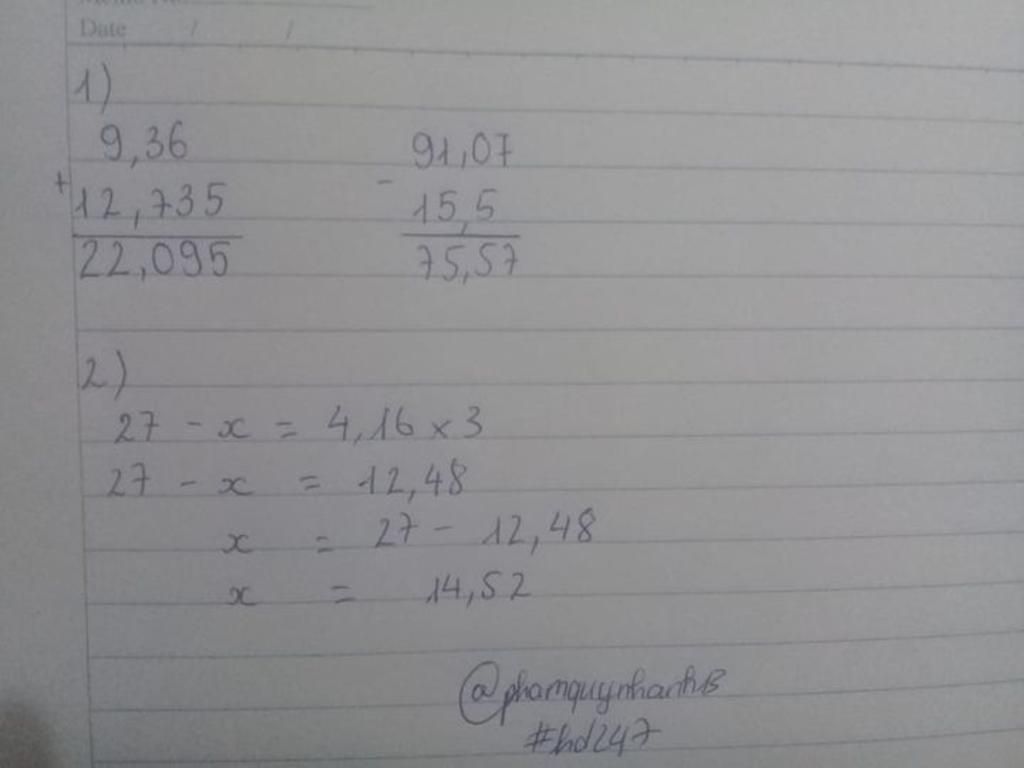 Date / /
1)
9,36
+
12,735
22,095
91,07
-
15,5
75,57
2)
27 - x = 4,16 x 3
27 - x = 12,48
x = 27 - 12,48
x = 14,52
#hd247